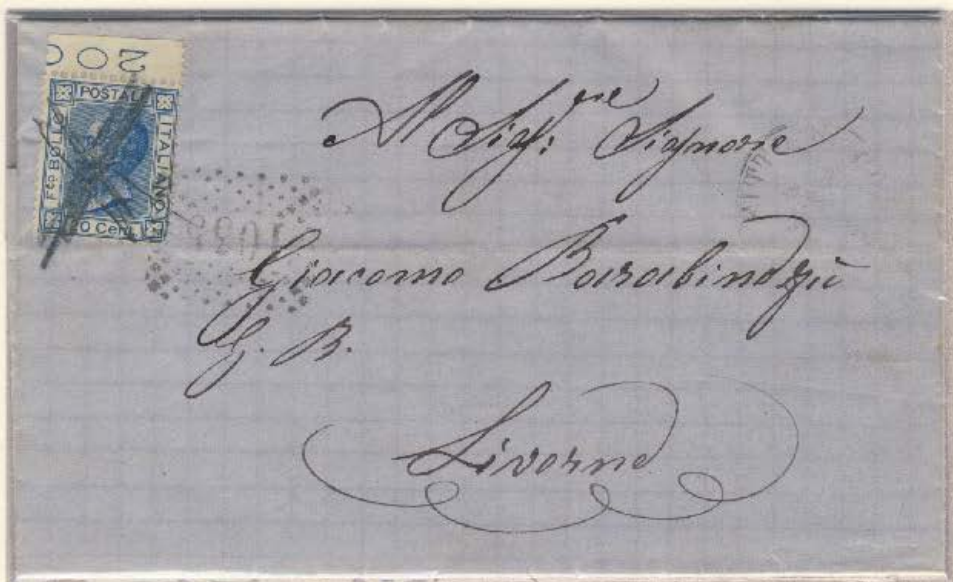 200
POSTALE
Fco BOLLO
ITALIANO
0 Cent.
Al Sigr: Signore
Giacomo Barabino
G. B.
Livorno